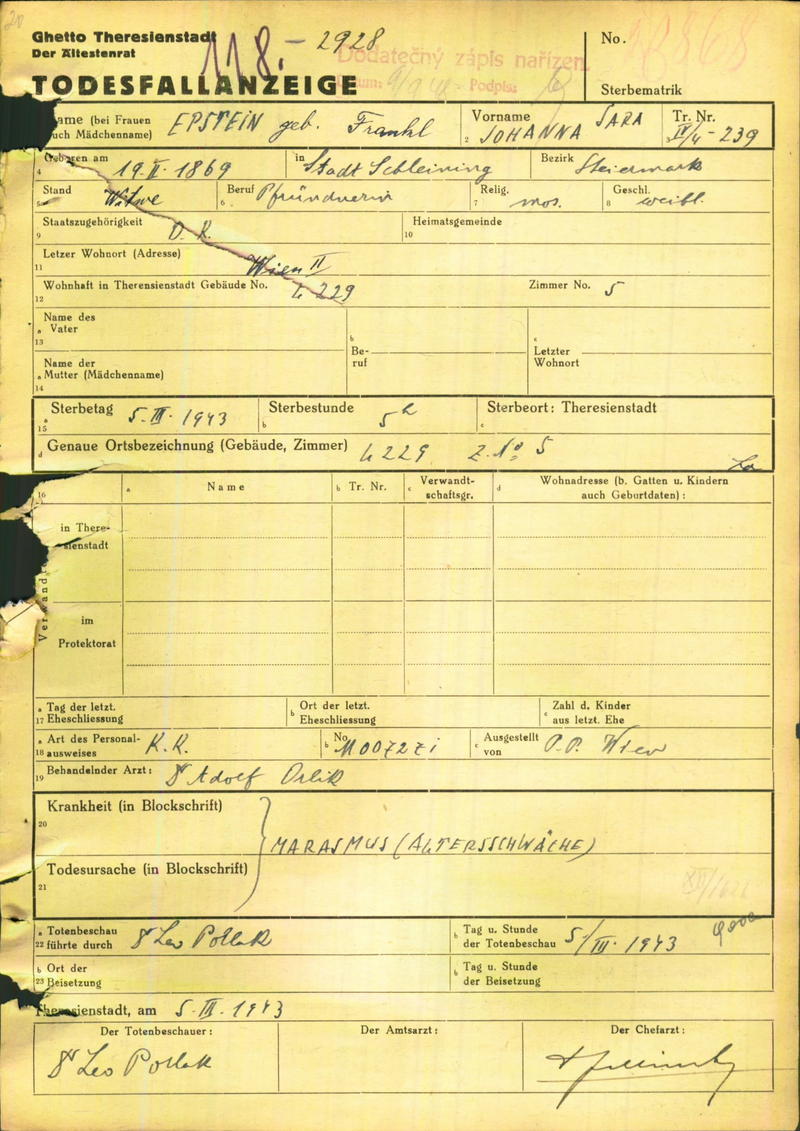 Ghetto Theresienstadt
Der Ältestenrat
118.- 2928
Dodatečný zápis nařízen.
Podpis:
TODESFALLANZEIGE
No.
Sterbematrik
ame (bei Frauen
uch Mädchenname)
EPSTEIN geb. Frankl
Vorname
2 JOHANNA SARA
Tr. Nr.
3 IV/4-239
Geboren am
4 19.II.1869
in Stadt Schleining
Bezirk Steiermark
Stand
5 Witwe
Beruf
6 Pfründnerin
Relig.
7 mos.
Geschl.
8 weibl.
Staatszugehörigkeit
9 D. R.
Heimatsgemeinde
10
Letzer Wohnort (Adresse)
11 Wien II
Wohnhaft in Therensienstadt Gebäude No. L 229
12
Zimmer No. 5
Name des
a Vater
13
b
Be-
ruf
c
Letzter
Wohnort
Name der
a Mutter (Mädchenname)
14
Sterbetag 5.III.1943
a
15
Sterbestunde 5h
b
Sterbeort: Theresienstadt
c
d Genaue Ortsbezeichnung (Gebäude, Zimmer) L 229 Z. No 5
16
a Name
b Tr. Nr.
c Verwandt-
schaftsgr.
d Wohnadresse (b. Gatten u. Kindern
auch Geburtdaten):
in There-
sienstadt
im
Protektorat
Verwand
a Tag der letzt.
17 Eheschliessung
b Ort der letzt.
Eheschliessung
c Zahl d. Kinder
aus letzt. Ehe
a Art des Personal-
18 ausweises K.K.
b No.
c Ausgestellt
von P.P. Wien
19 Behandelnder Arzt: Dr Adolf Orlik
Krankheit (in Blockschrift)
20
MARASMUS (ALTERSSCHWÄCHE)
Todesursache (in Blockschrift)
21
a Totenbeschau
22 führte durch Dr Leo Pollak
b Tag u. Stunde
der Totenbeschau 5/III.1943
b Ort der
23 Beisetzung
b Tag u. Stunde
der Beisetzung
Theresienstadt, am 5.III.1943
Der Totenbeschauer:
Der Amtsarzt:
Der Chefarzt:
Dr Leo Pollak